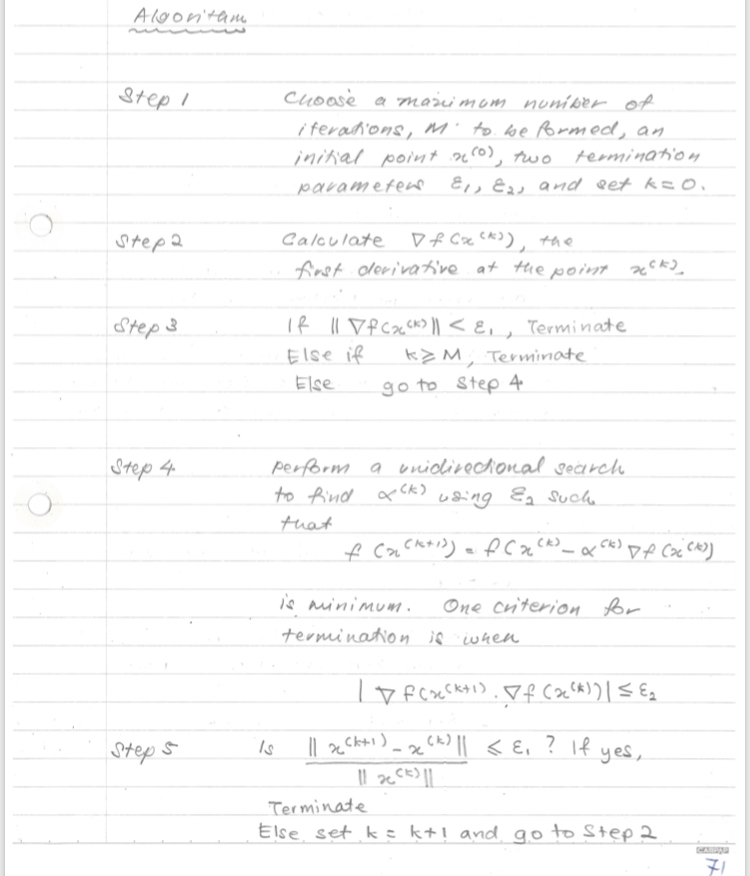 Algoritam
Step 1 Choose a maximum number of
iterations, M to be formed, an
initial point x^(0), two termination
parameters ε₁, ε₂, and set k=0.
Step 2 Calculate ∇f(x^(k)), the
first derivative at the point x^(k).
Step 3 If ||∇f(x^(k)|| < ε₁, Terminate
Else if k ≥ M, Terminate
Else go to Step 4
Step 4 Perform a unidirectional search
to find α^(k) using ε₂ such
that
f(x^(k+1)) = f(x^(k) - α^(k) ∇f(x^(k))
is minimum. One criterion for
termination is when
|∇f(x^(k+1)). ∇f(x^(k))| ≤ ε₂
Step 5 Is ||x^(k+1) - x^(k)|| ≤ ε₁ ? If yes,
||x^(k)||
Terminate
Else set k = k+1 and go to Step 2
71